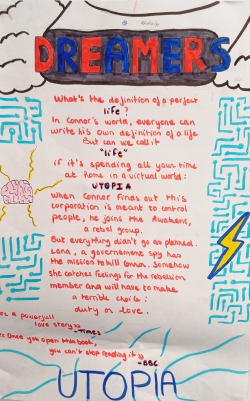 DREAMERS
What's the definition of a perfect
life?
In Connor's world, everyone can
write his own definition of a life
But can we call it
"life"
if it's spending all your time
at home in a virtual world:
UTOPIA
When Connor finds out this
corporation is meant to control
people, he joins the Awakens,
a rebel group.
But everything didn't go as planned.
Lena, a governement spy has
the mission to kill Connor. Somehow
she catches feelings for the rebellion
member and will have to make
a terrible choice:
duty or love.
a powerfull
love story
-Times
Once you open this book,
you can't stop reading it
-BBC
UTOPIA